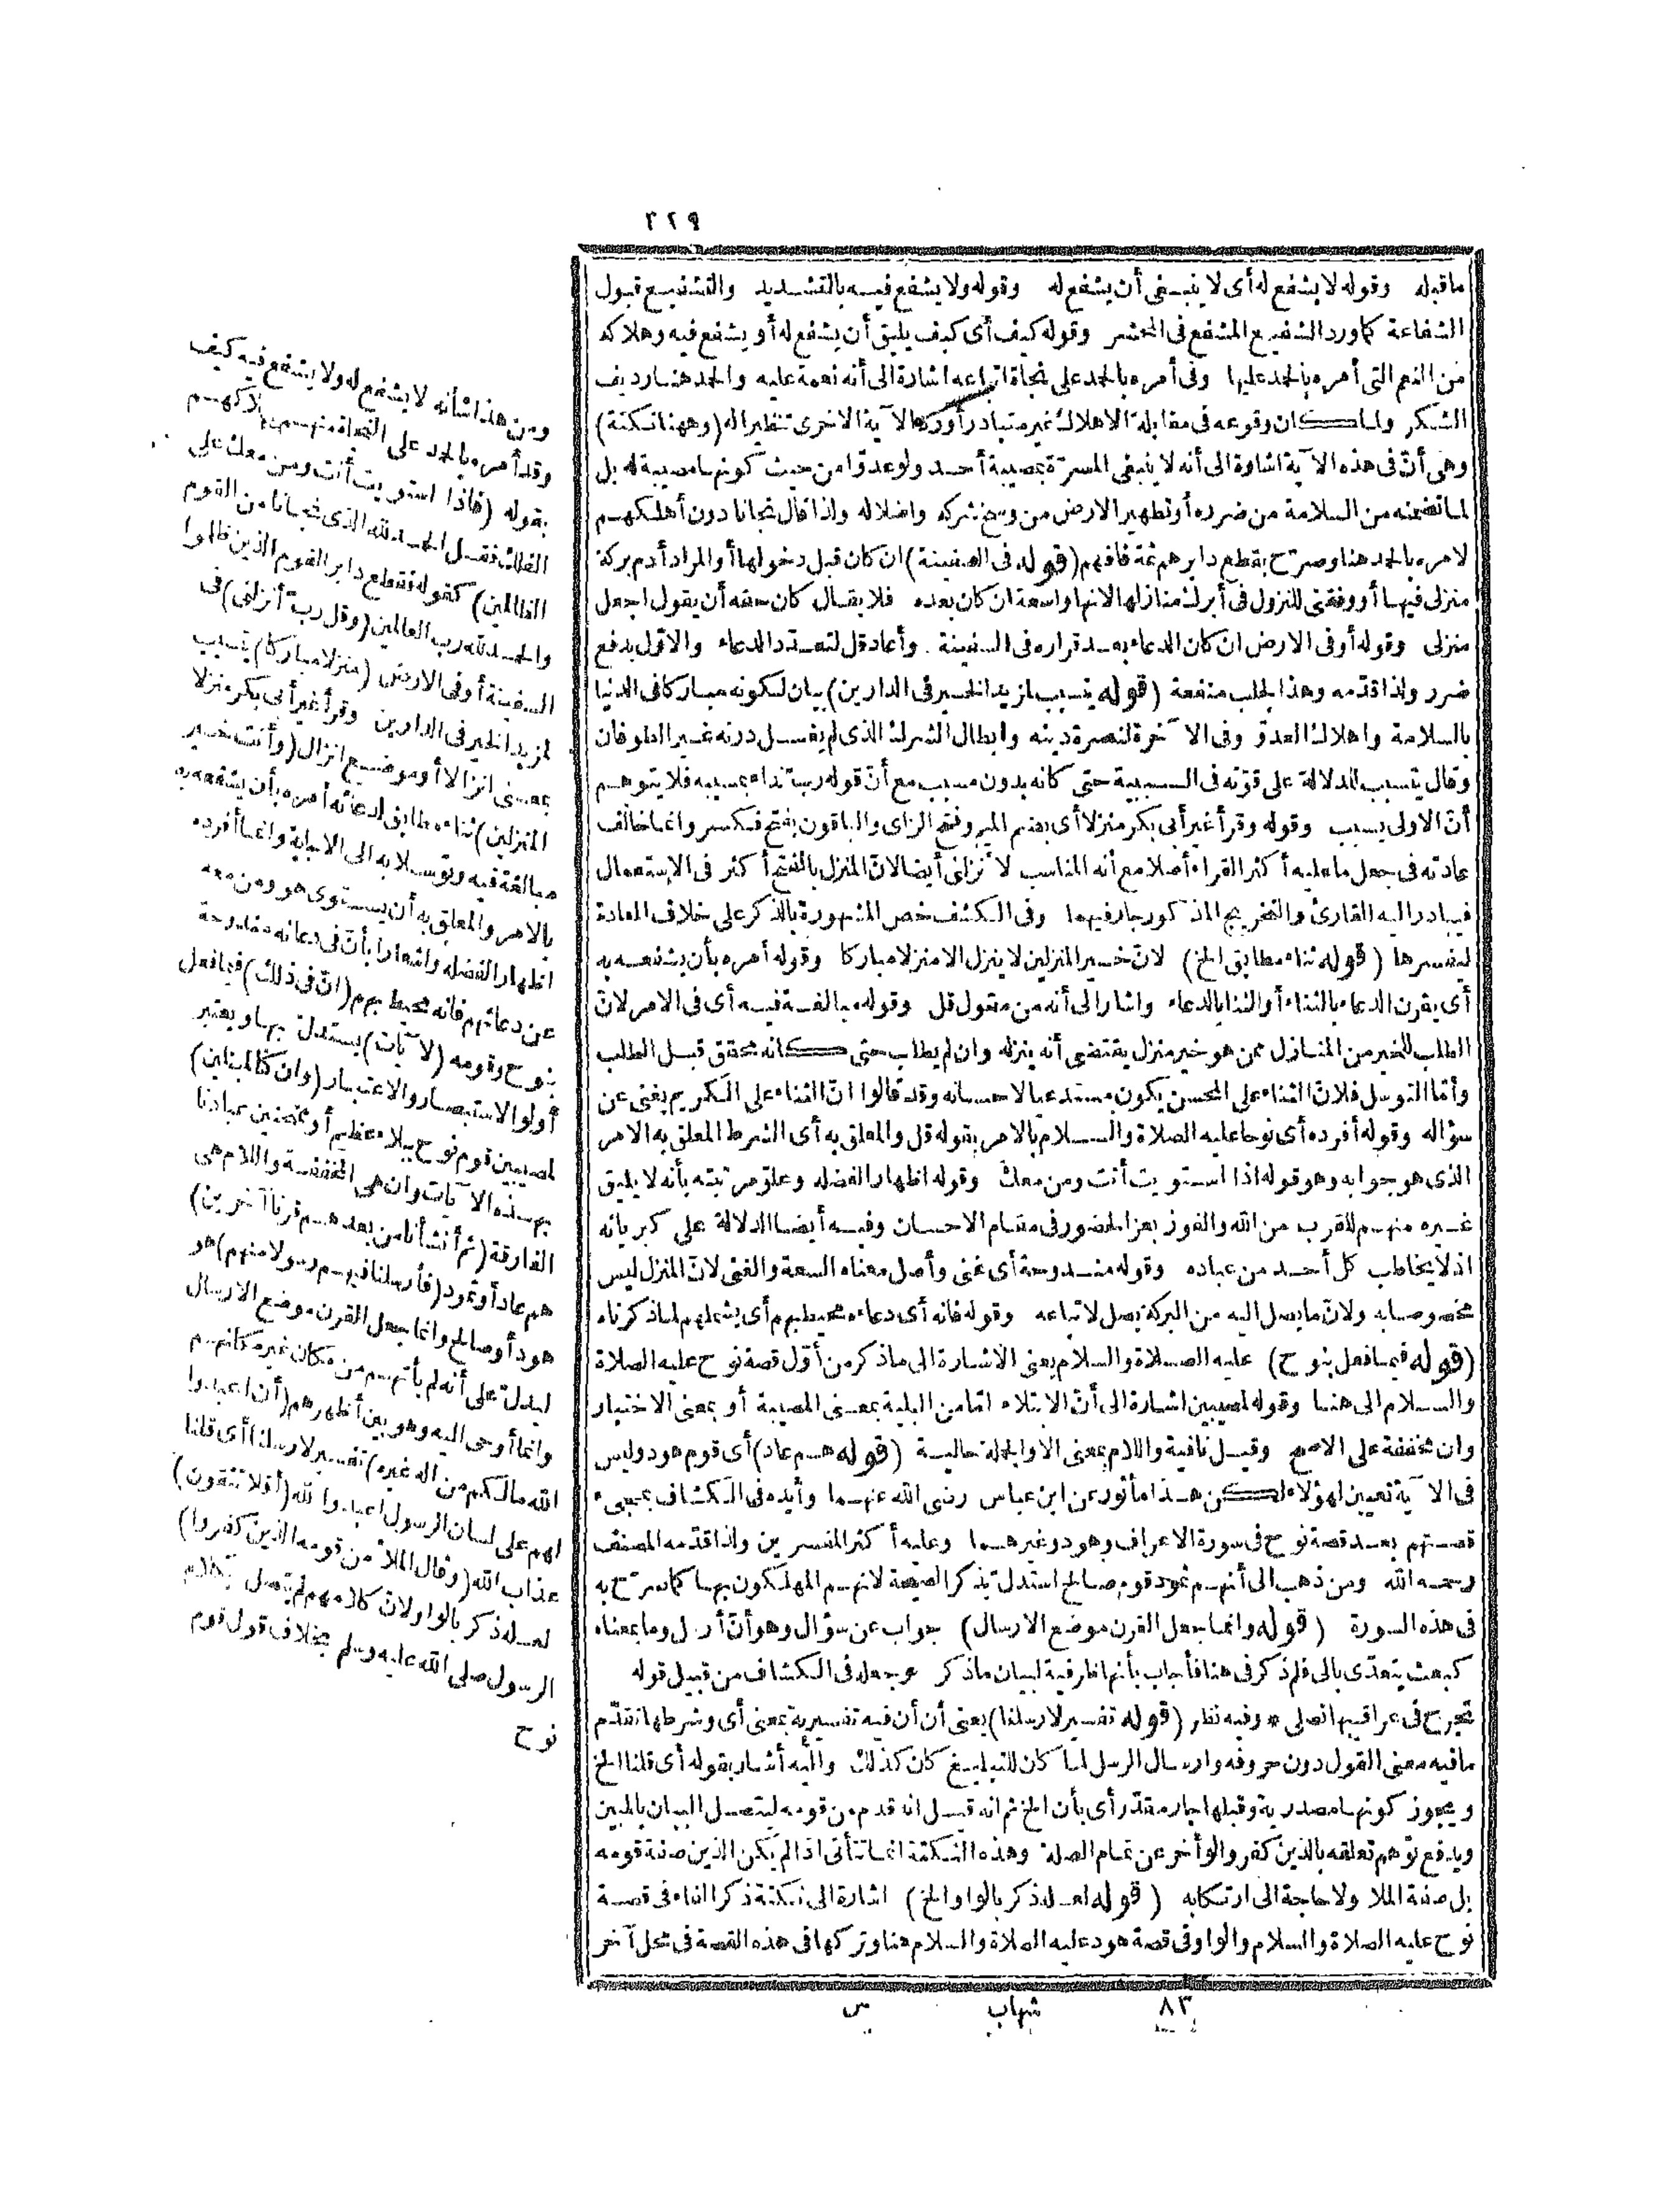 ٣٢٩
ما قبله وقوله لا يشفع له أى لا ينبغى أن يشفع له وقوله ولا يشفع فيه بالتشديد والتشفيع قبول
الشفاعة كما ورد الشفيع المشفع فى المحشر وقوله كيف أى كيف يليق أن يشفع له أو يشفع فيه وهلاكه
من النعم التى أمره بالحمد عليها وفى أمره بالحمد على نجاة اتباعه اشارة الى أنه نعمة عليه والحمد هنا رديف
الشكر ولما كان وقوعه فى مقابلة الاهلاك غير متبادر أورد الآية الاخرى تنظيرا له (وههنا نكتة)
وهى أنّ فى هذه الآية اشارة الى أنه لا ينبغى المسرّة بمصيبة أحد ولو عدوّا من حيث كونها مصيبة له بل
لما تضمنه من السلامة من ضرره أو تطهير الارض من وسخ شركه واضلاله ولذا قال نجانا دون أهلكهم
لامره بالحمد هنا وصرّح بقطع دابرهم ثمة فافهم (قوله فى السفينة) ان كان قبل دخولها أو المراد أدم بركة
منزلى فيها أو وفقنى للنزول فى أبرك منازلها لانها واسعة ان كان بعده فلا يقال كان حقه أن يقول اجعل
منزلى وقوله أو فى الارض ان كان الدعاء بعد قراره فى السفينة وأعاد قل لتعدّد الدعاء والاوّل بدفع
ضرر ولذا قدّمه وهذا بجلب منفعة (قوله يتسبب لمزيد الخير فى الدارين) بيان لكونه مباركا فى الدنيا
بالسلامة واهلاك العدوّ وفى الآخرة لنصرة دينه وابطال الشرك الذى لم يغسل درنه غير الطوفان
وقال يتسبب للدلالة على قوّته فى السببية حتى كانه بدون مسبب مع أنّ قوله رب نداء بمسببه فلا يتوهم
أنّ الاولى يسبب وقوله وقرأ غير أبى بكر منزلا أى بضم الميم وفتح الزاى والباقون بفتح فكسر وانما خالف
عادته فى جعل ما عليه أكثر القراء أصلا مع أنه المناسب لأنزلنى أيضا لانّ المنزل بالفتح أكثر فى الاستعمال
فيبادر اليه القارئ والتخريج المذكور جار فيهما وفى الكشف خص المشهورة بالذكر على خلاف العادة
ليفسرها (قوله ثناء مطابق الخ) لانّ خير المنزلين لا ينزل الا منزلا مباركا وقوله أمره بأن يشفعه به
أى يقرن الدعاء بالثناء أو الثناء بالدعاء واشار الى أنه من مقول قل وقوله مبالغة فيه أى فى الامر لانّ
الطلب للخير من المنازل ممن هو خير منزل يقتضى أنه ينزله وان لم يطلب حتى كانه محقق قبل الطلب
وأمّا التوسل فلانّ الثناء على المحسن يكون مستدعيا لاحسانه وقد قالوا انّ الثناء على الكريم يغنى عن
سؤاله وقوله أفرده أى نوحا عليه الصلاة والسلام بالامر بقوله قل والمعلق به أى الشرط المعلق به الامر
الذى هو جوابه وهو قوله اذا استويت أنت ومن معك وقوله اظهارا لفضله وعلوّ مرتبته بأنه لا يليق
غيره منهم للقرب من الله والفوز بعز الحضور فى مقام الاحسان وفيه أيضا الدلالة على كبريائه
اذ لا يخاطب كل أحد من عباده وقوله مندوحة أى غنى وأصل معناه السعة والغنى لانّ المنزل ليس
مخصوصا به ولانّ ما يصل اليه من البركة يصل لاتباعه وقوله فانه أى دعاءه محيط بهم أى يشملهم لما ذكرناه
(قوله فيما فعل بنوح) عليه الصلاة والسلام يعنى الاشارة الى ما ذكر من أوّل قصة نوح عليه الصلاة
والسلام الى هنا وقوله لمصيبين اشارة الى أنّ الابتلاء امّا من البلية بمعنى المصيبة أو بمعنى الاختبار
وان مخففة على الاصح وقيل نافية واللام بمعنى الا والجملة حالية (قوله هم عاد) أى قوم هود وليس
فى الآية تعيين لهؤلاء لكن هذا مأثور عن ابن عباس رضى الله عنهما وأيده فى الكشاف بمجىء
قصتهم بعد قصة نوح فى سورة الاعراف وهود وغيرهما وعليه أكثر المفسرين ولذا قدّمه المصنف
رحمه الله ومن ذهب الى أنهم ثمود قوم صالح استدل بذكر الصيحة لانهم المهلكون بها كما صرّح به
فى هذه السورة (قوله وانما جعل القرن موضع الارسال) جواب عن سؤال وهو أنّ أرسل وما بمعناه
كبعث يتعدّى بالى فلم ذكر فى هنا فأجاب بأنها ظرفية لبيان ما ذكر وجعله فى الكشاف من قبيل قوله
تجرح فى عراقيبها نصلى * وفيه نظر (قوله تفسير لارسلنا) يعنى أن أن فيه تفسيرية بمعنى أى وشرطها تقدّم
ما فيه معنى القول دون حروفه وارسال الرسل لما كان للتبليغ كان كذلك واليه أشار بقوله أى قلنا الخ
ويجوز كونها مصدرية وقبلها جار مقدّر أى بأن الخ ثم انه قيل انه قدم من قومه ليتصل البيان بالمبين
ويدفع توهم تعلقه بالذين كفروا لو أخر عن تمام الصلة وهذه النكتة انما تتأتى اذا لم يكن الذين صفة قومه
بل صفة الملا ولا حاجة الى ارتكابه (قوله لعله ذكر بالواو الخ) اشارة الى نكتة ذكر الفاء فى قصة
نوح عليه الصلاة والسلام والواو فى قصة هود عليه الصلاة والسلام هنا وتركها فى هذه القصة فى محل آخر
ومن هذا شأنه لا يشفع له ولا يشفع فيه كيف
وقد أمره بالحمد على النجاة منهم بهلاكهم
بقوله (فاذا استويت أنت ومن معك على
الفلك فقل الحمد لله الذى نجانا من القوم
الظالمين) كقوله فقطع دابر القوم الذين ظلموا
والحمد لله رب العالمين (وقل رب أنزلنى) فى
السفينة أو فى الارض (منزلا مباركا) يتسبب
لمزيد الخير فى الدارين وقرأ غير أبى بكر منزلا
بمعنى انزالا أو موضع انزال (وأنت خير
المنزلين) ثناء مطابق لدعائه أمره بأن يشفعه به
مبالغة فيه وتوسلا به الى الاجابة وانما أفرده
بالامر والمعلق به أن يستوى هو ومن معه
اظهارا لفضله واشعارا بأنّ فى دعائه مندوحة
عن دعائهم فانه محيط بهم (انّ فى ذلك) فيما فعل
بنوح وقومه (لآيات) يستدل بها ويعتبر
أولو الاستبصار والاعتبار (وان كنا لمبتلين)
لمصيبين قوم نوح ببلاء عظيم أو ممتحنين عبادنا
بهذه الآيات وان هى المخففة واللام هى
الفارقة (ثم أنشأنا من بعدهم قرنا آخرين)
هم عاد أو ثمود (فأرسلنا فيهم رسولا منهم) هو
هود أو صالح وانما جعل القرن موضع الارسال
ليدلّ على أنه لم يأتهم من مكان غير مكانهم
وانما أوحى اليه وهو بين أظهرهم (أن اعبدوا
الله ما لكم من اله غيره) تفسير لارسلنا أى قلنا
لهم على لسان الرسول اعبدوا الله (أفلا تتقون)
عذاب الله (وقال الملأ من قومه الذين كفروا)
لعله ذكر بالواو لانّ كلامهم لم يتصل بكلام
الرسول صلى الله عليه وسلم بخلاف قول قوم
نوح
٨٣ شهاب س